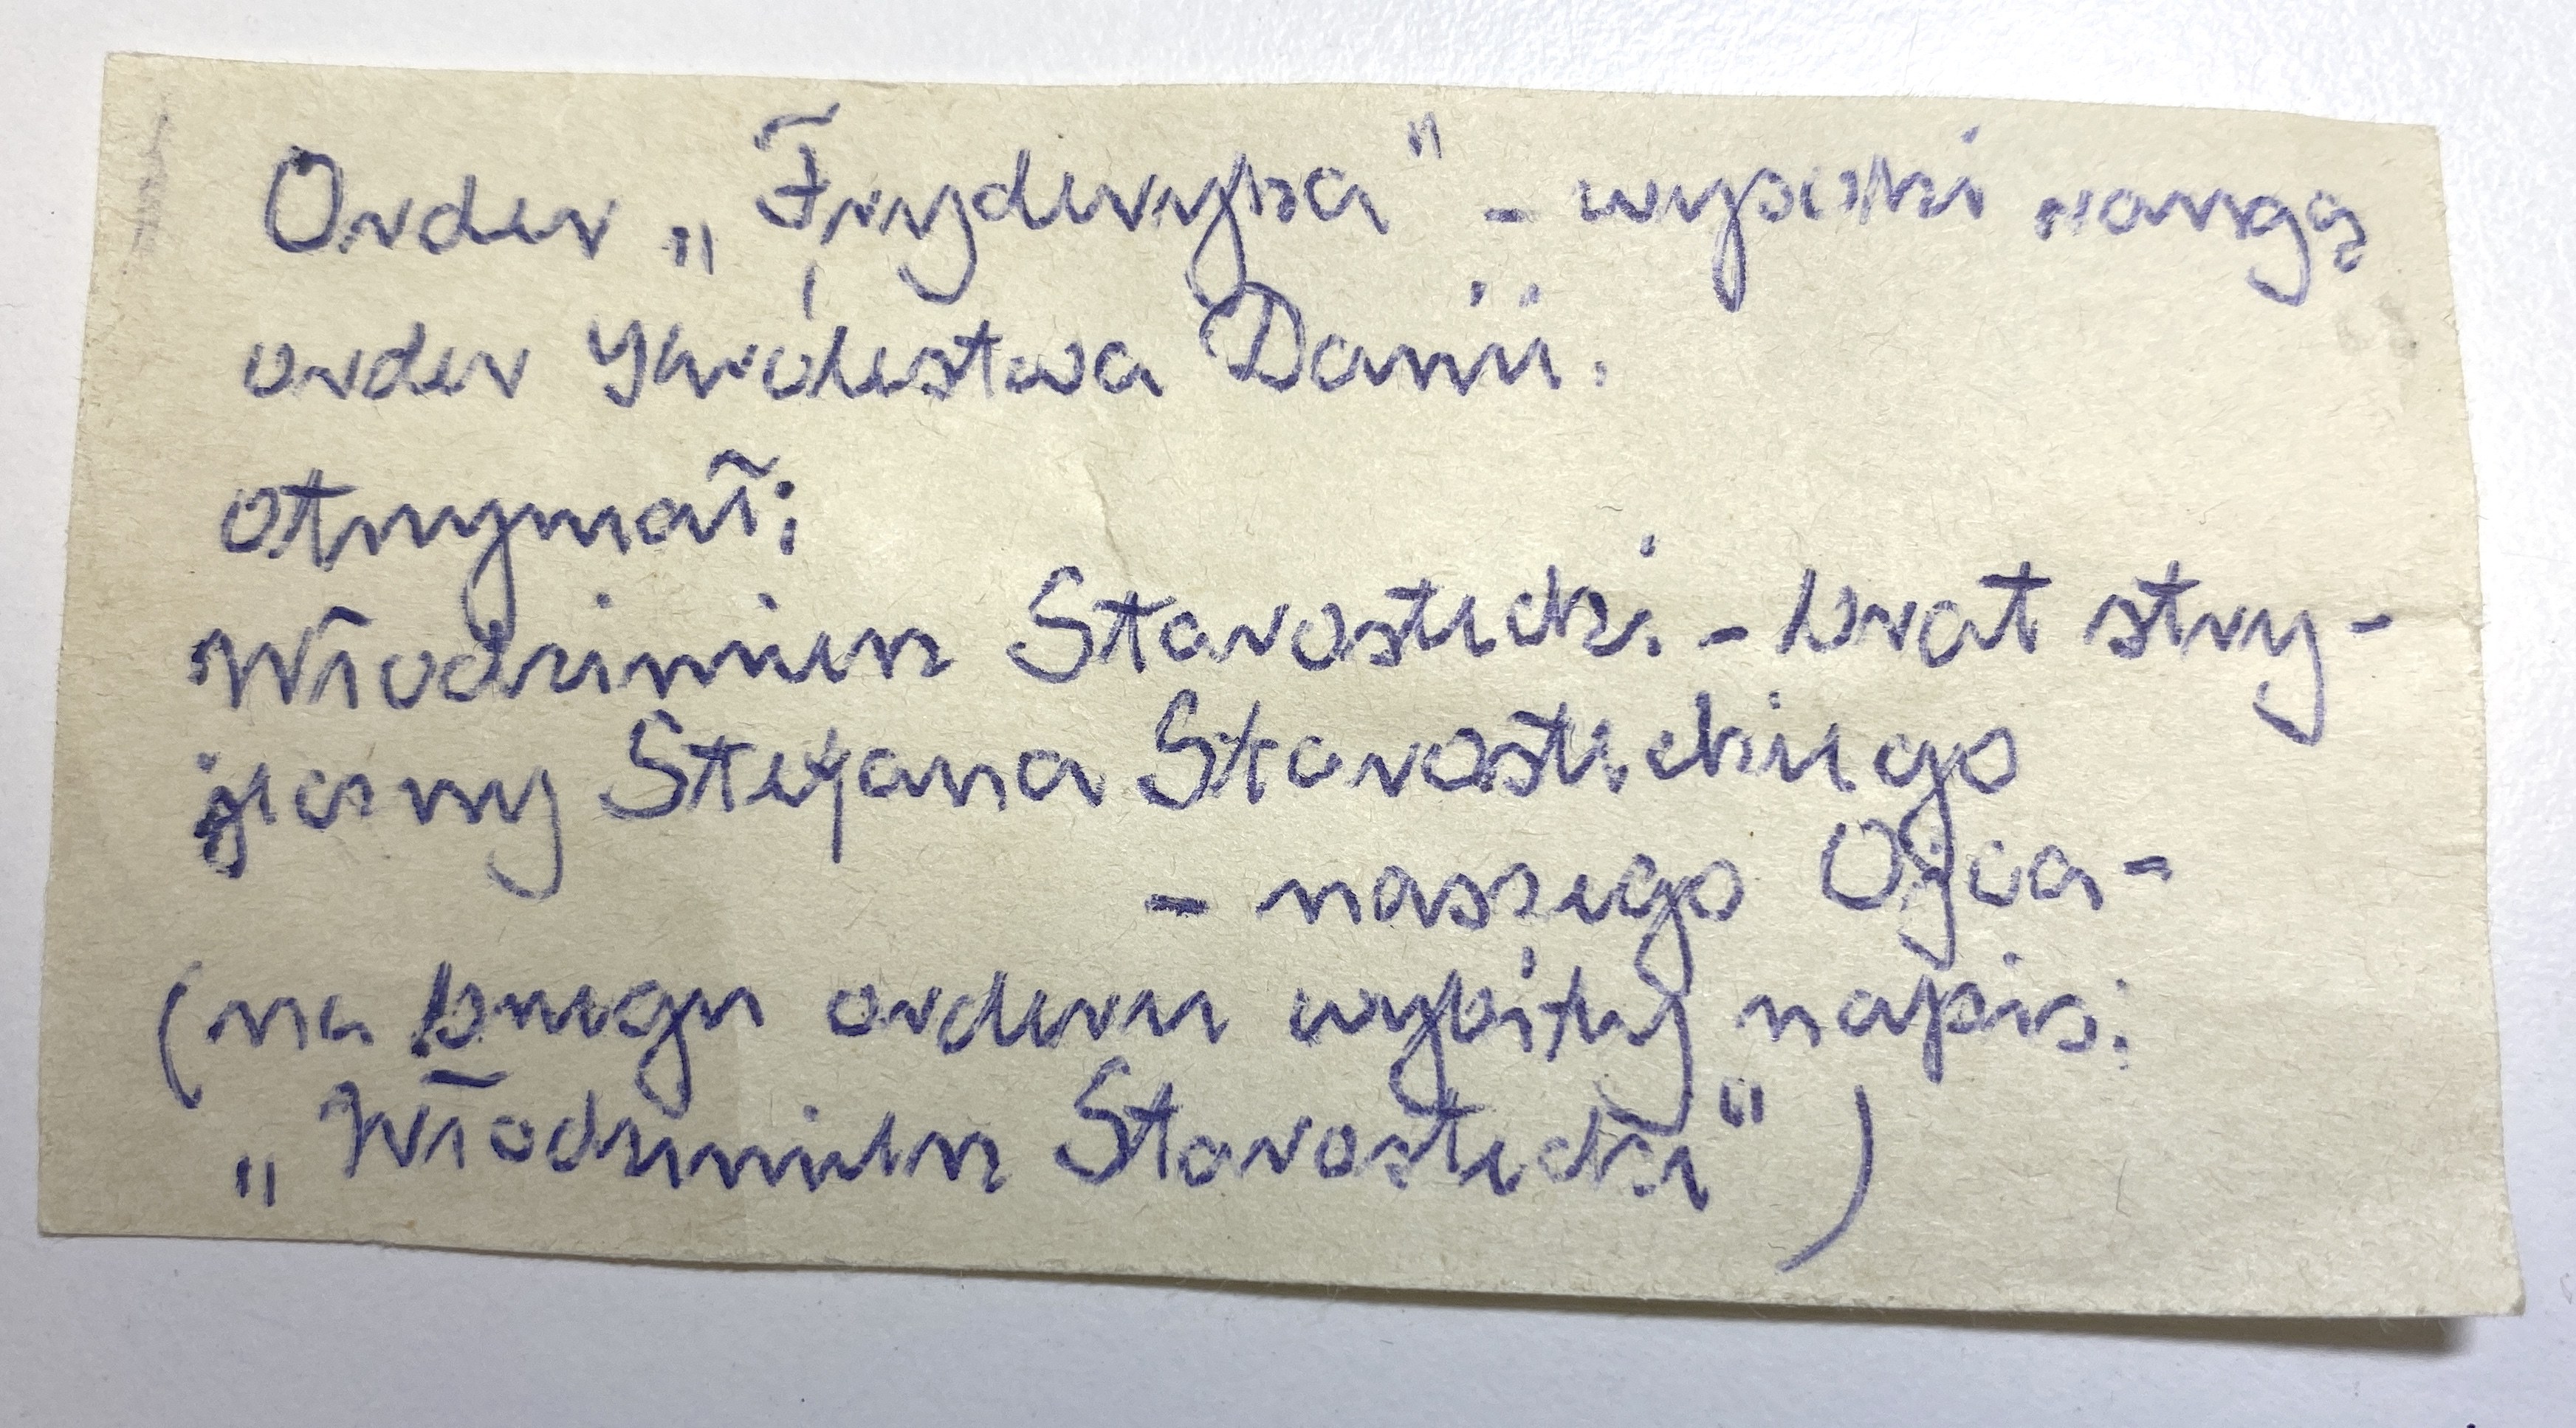 Order „Fryderyka" - wysoki rangą
order Królestwa Danii.
otrzymał:
Włodzimierz Starostecki - brat stry-
jeczny Stefana Starosteckiego
- naszego Ojca -
(na brzegu orderu wybity napis:
„Włodzimierz Starostecki")